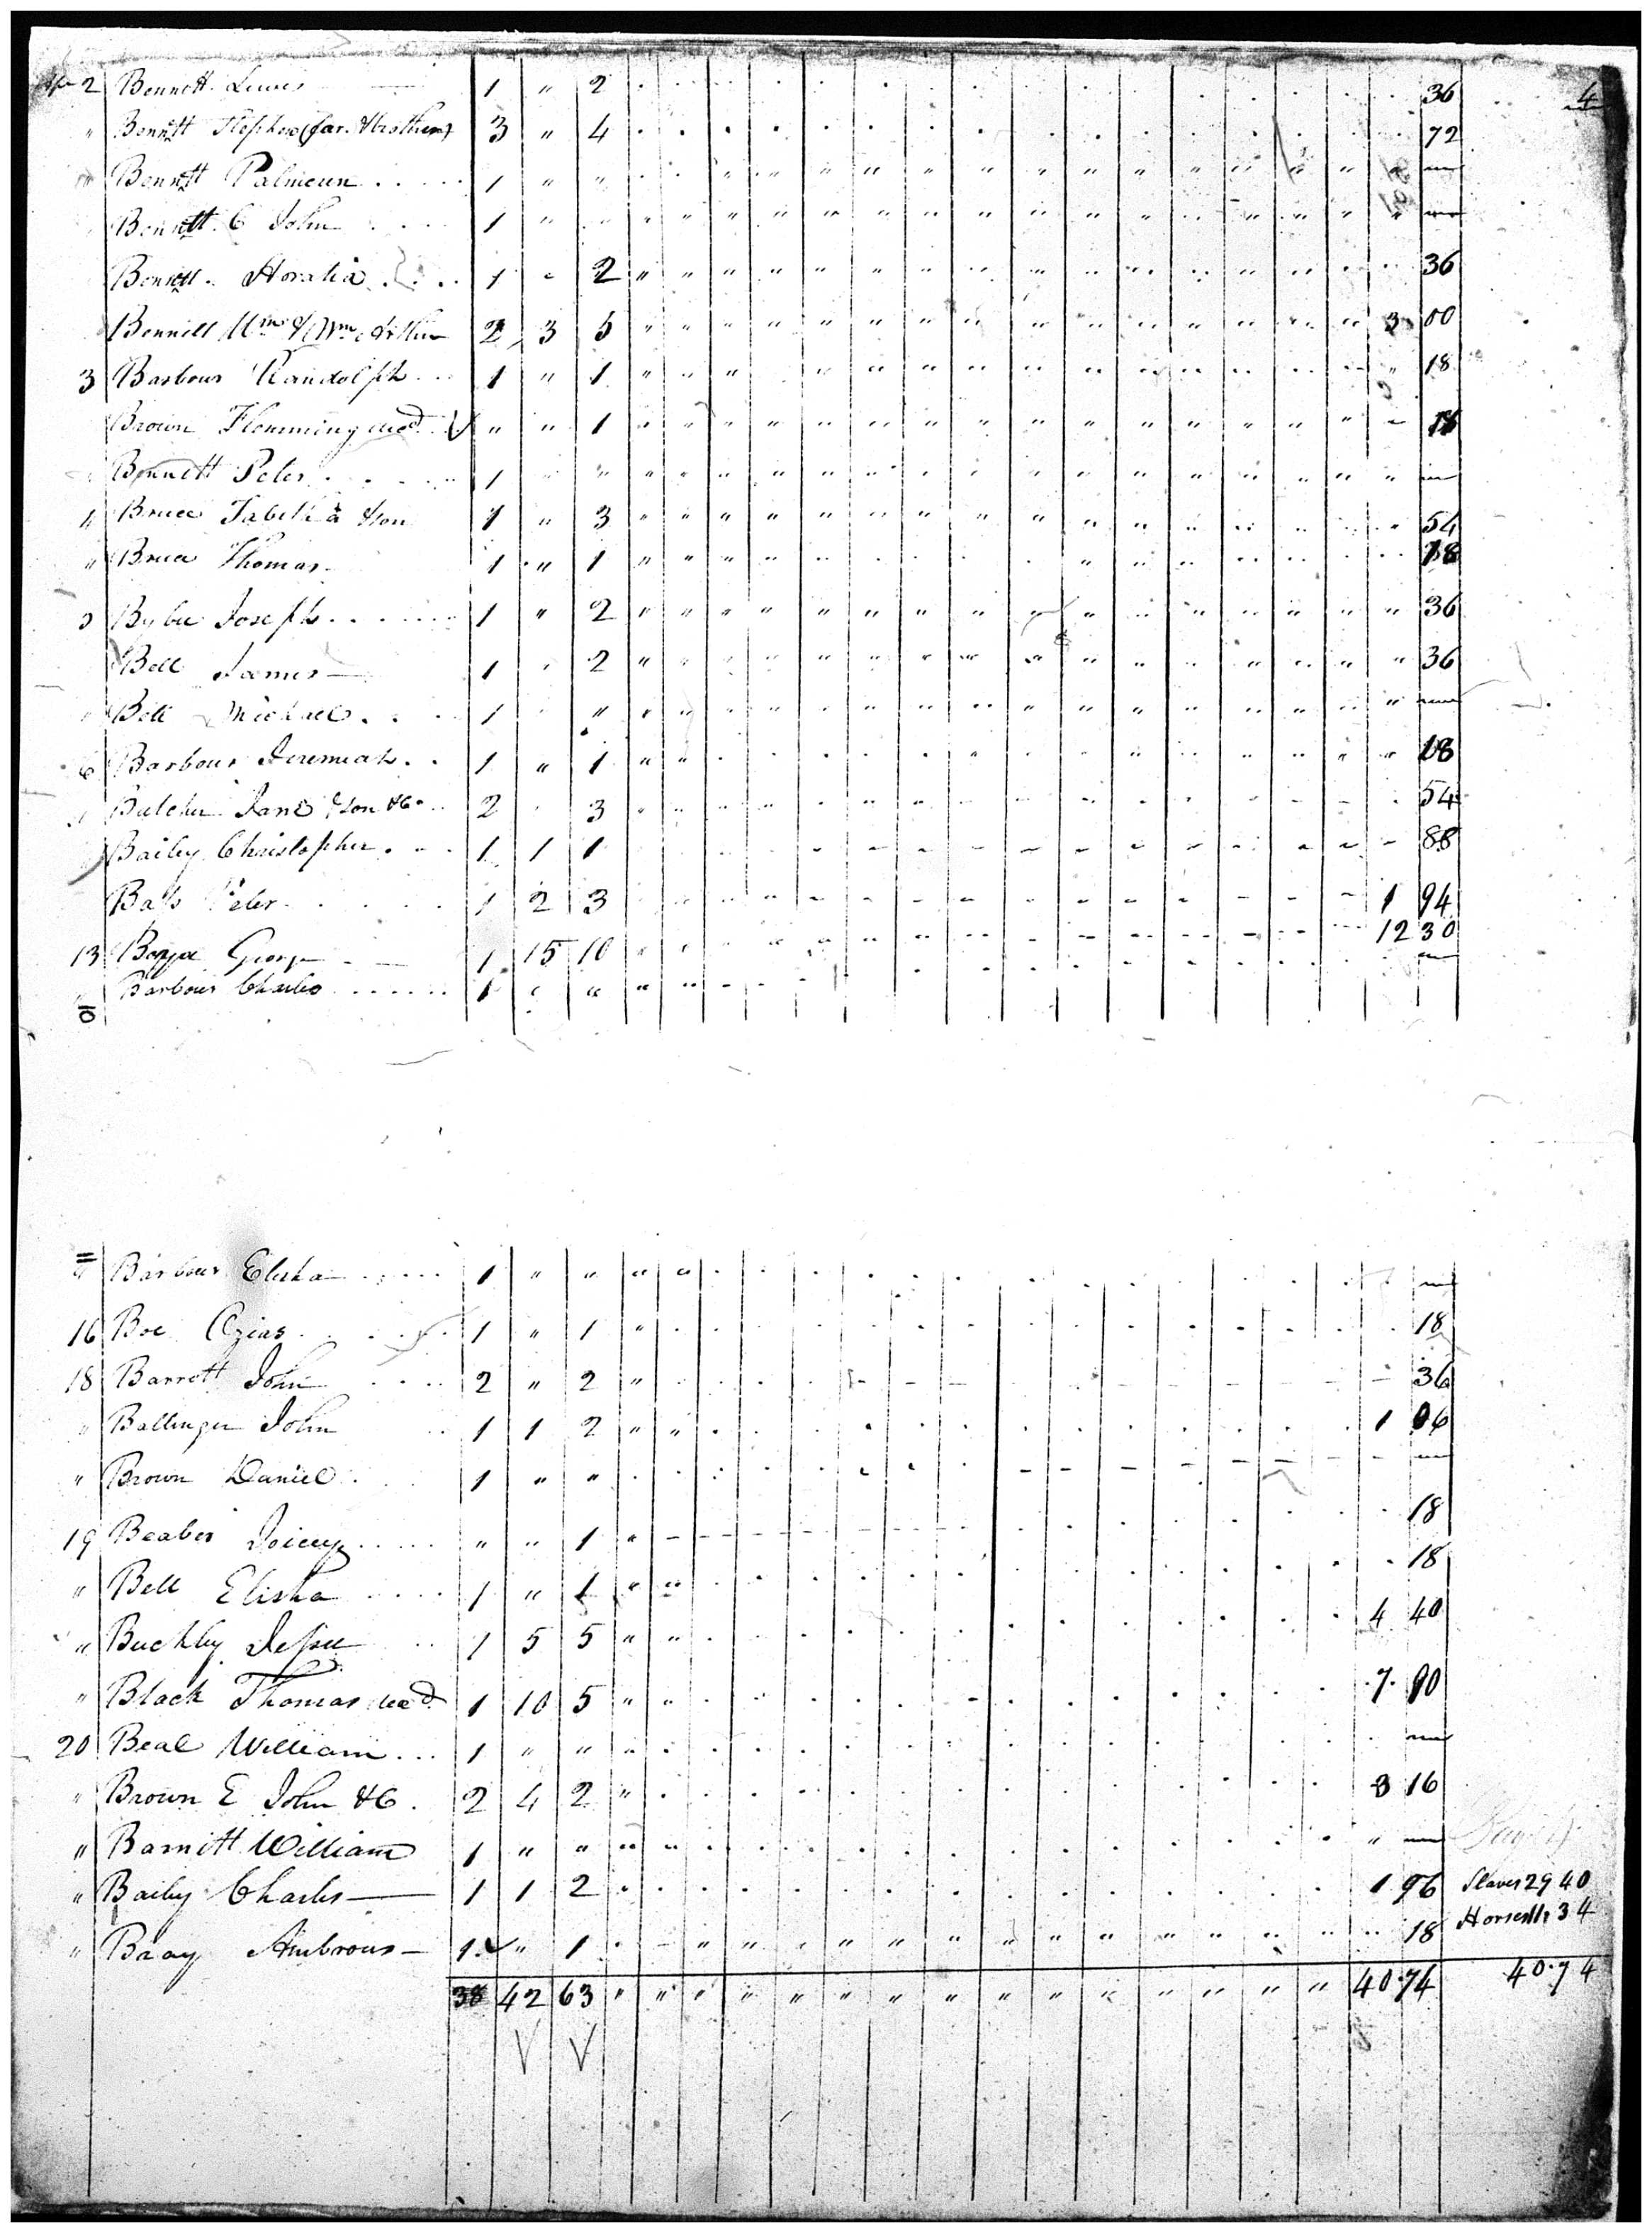 2 Bennett Lewis 1 " 2 36 4
" Bennett Stephen (far. & brothers) 3 " 4 72
Bennett Palmeun 1 " "
Bennett C John 1 "
Bennett Horatia 1 " 2 36
Bennett Wm & Wm Arthur 2 3 5 3 00
3 Barbour Randolph 1 " 1 18
Brown Flemming decd " " 1 18
Bennett Peter 1 "
4 Bruce Tabitha & son 1 " 3 54
" Bruce Thomas 1 " 1 18
Bybee Joseph 1 " 2 36
Bell James 1 2 36
Bell Michael 1 "
6 Barbour Jeremiah 1 " 1 18
Butcher Jane & son &C 2 3 54
Bailey Christopher 1 1 1 88
Bals Peter 1 2 3 1 94
13 George 1 15 10 12 30
Barbour Charles 1 "
10
11
" Barbour Elisha 1 " "
16 Boe Ozias 1 " 1 18
18 Barrott John 2 " 2 36
" Ballinger John 1 1 2 1 06
" Brown Daniel 1 " "
19 Beaber Joicey " " 1 18
" Bell Elisha 1 " 1 18
" Buckley Jesse 1 5 5 4 40
" Black Thomas decd 1 10 5 7 90
20 Beal William 1 " "
" Brown E John &C 2 4 2 3 16
" Barnitt William 1 " "
" Baily Charles 1 1 2 1 96 Slaves 29 40
" Bray Ambrous 1 " 1 18 Horses 11 34
38 42 63 40.74 40.74